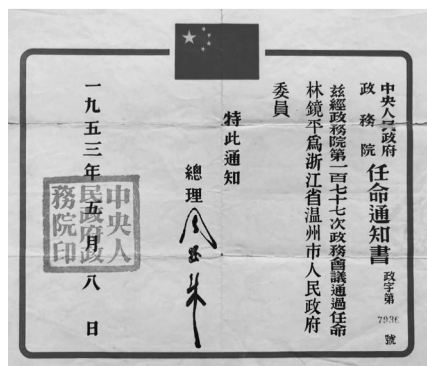 中央人民政府
政務院
任命通知書
政字第 7936 號
兹經政務院第一百七十七次政務會議通過任命
林鏡平爲浙江省温州市人民政府
委員
特此通知
總理 周恩来
一九五三年五月八日
中央人
民政府政
務院印